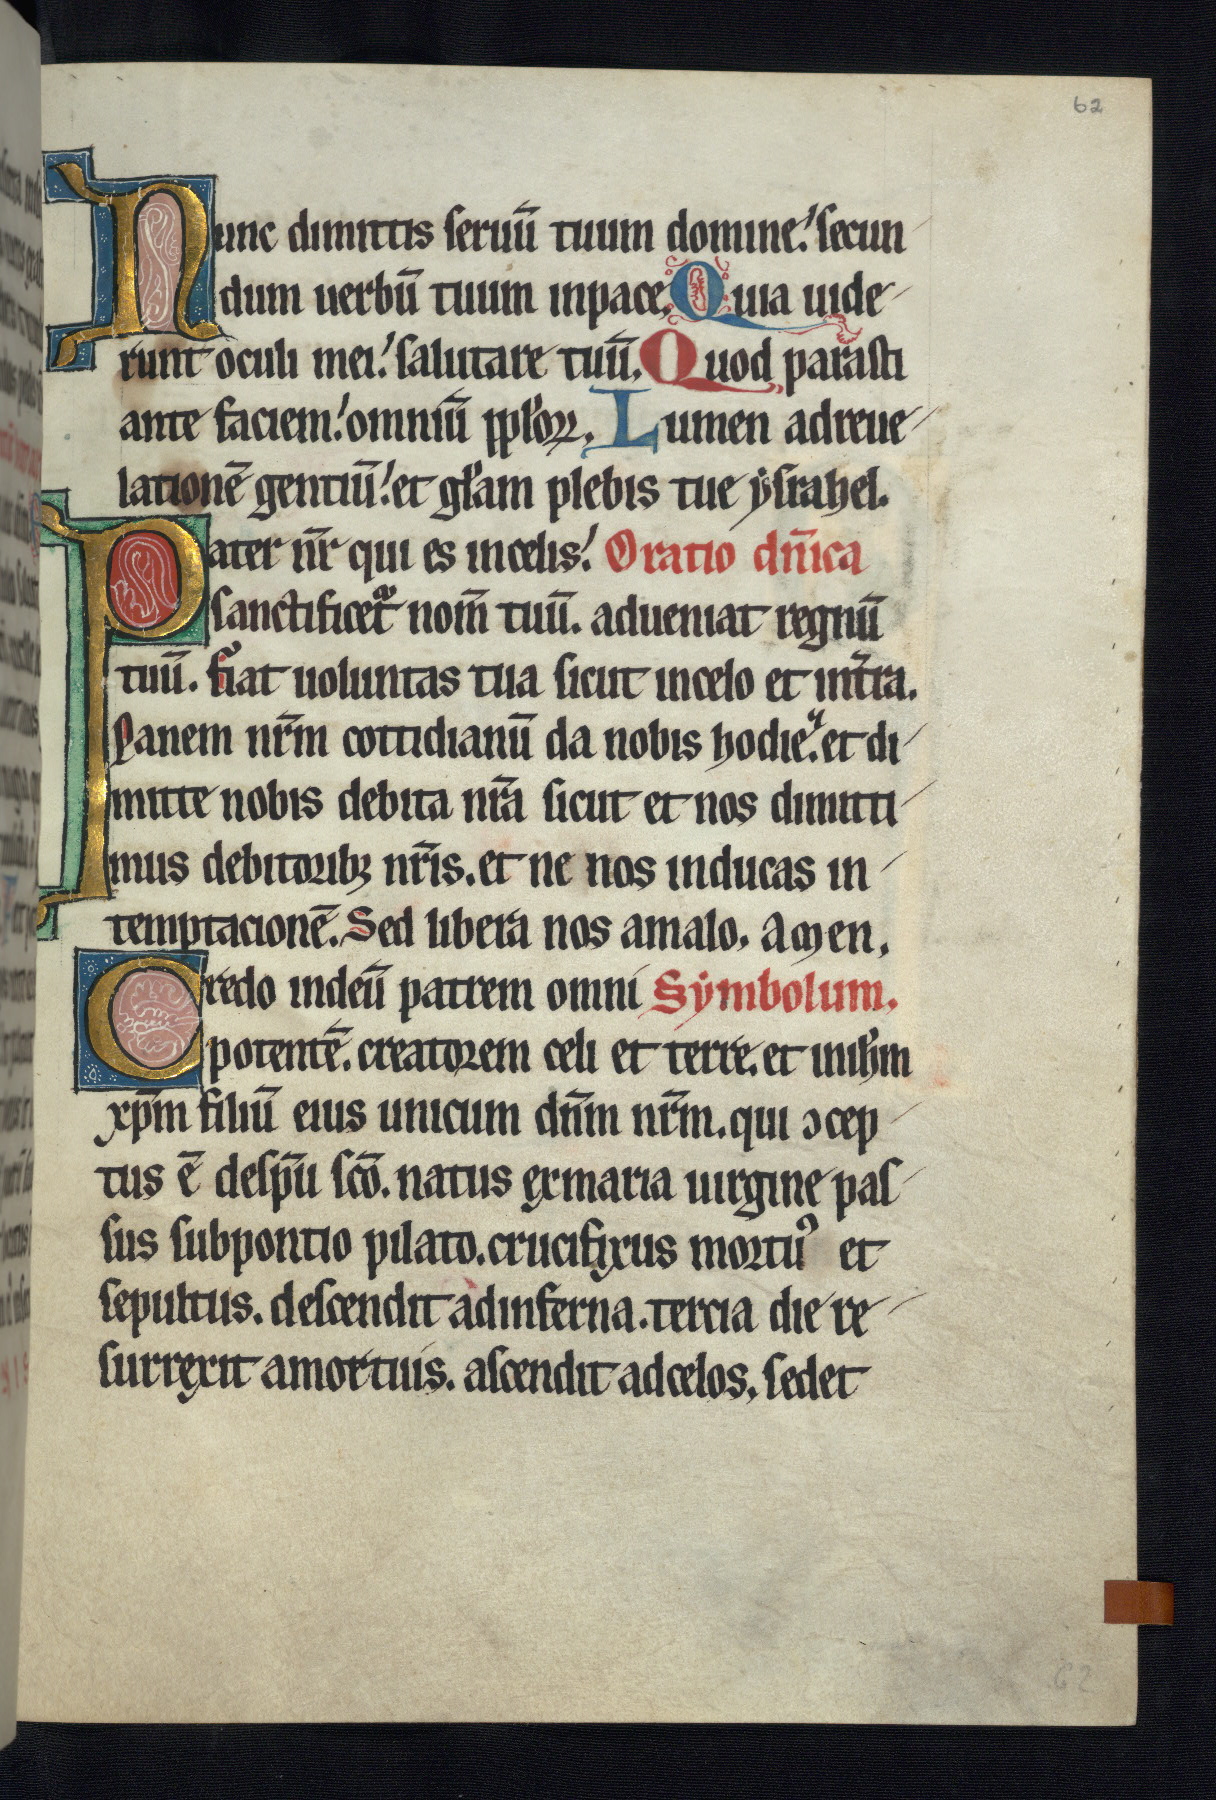 62
Nunc dimittis seruū tuum domine! secun
dum uerbū tuum inpace. Quia uide
runt oculi mei! salutare tuū. Quod parasti
ante faciem! omniū pploꝝ. Lumen adreue
lationē gentiū! et gl̄am plebis tue ẏsrahel.
Pater nr̄ qui es incelis! Oratio dn̄ica
sanctificetᷓ nom̄ tuū. adueniat regnū
tuū. fiat uoluntas tua sicut incelo et int̄ra.
Panem nr̄m cottidianū da nobis hodie. et di
mitte nobis debita nr̄a sicut et nos dimitti
mus debitoribꝫ nr̄is. et ne nos inducas in
temptacionē. Sed libera nos amalo. amen.
Credo indeū patrem omni Sẏmbolum.
potentē. creatorem celi et terre. et inih̄m
xp̄m filiū eius unicum dn̄m nr̄m. qui ↄcep
tus ē desp̄u sc̄o. natus exmaria uirgine pas
sus subpontio pilato. crucifixus mortuꝰ et
sepultus. descendit adinferna. tercia die re
surrexit amortuis. ascendit adcelos. sedet
62